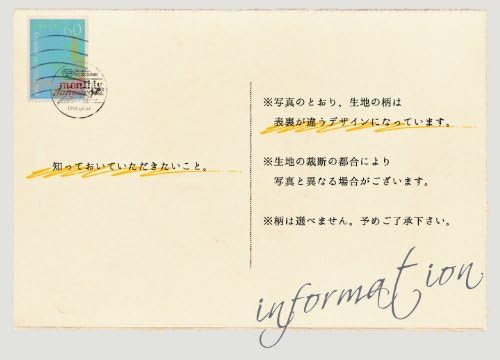 60
monthly
知っておいていただきたいこと。
※写真のとおり、生地の柄は
表裏が違うデザインになっています。
※生地の裁断の都合により
写真と異なる場合がございます。
※柄は選べません。予めご了承下さい。
information